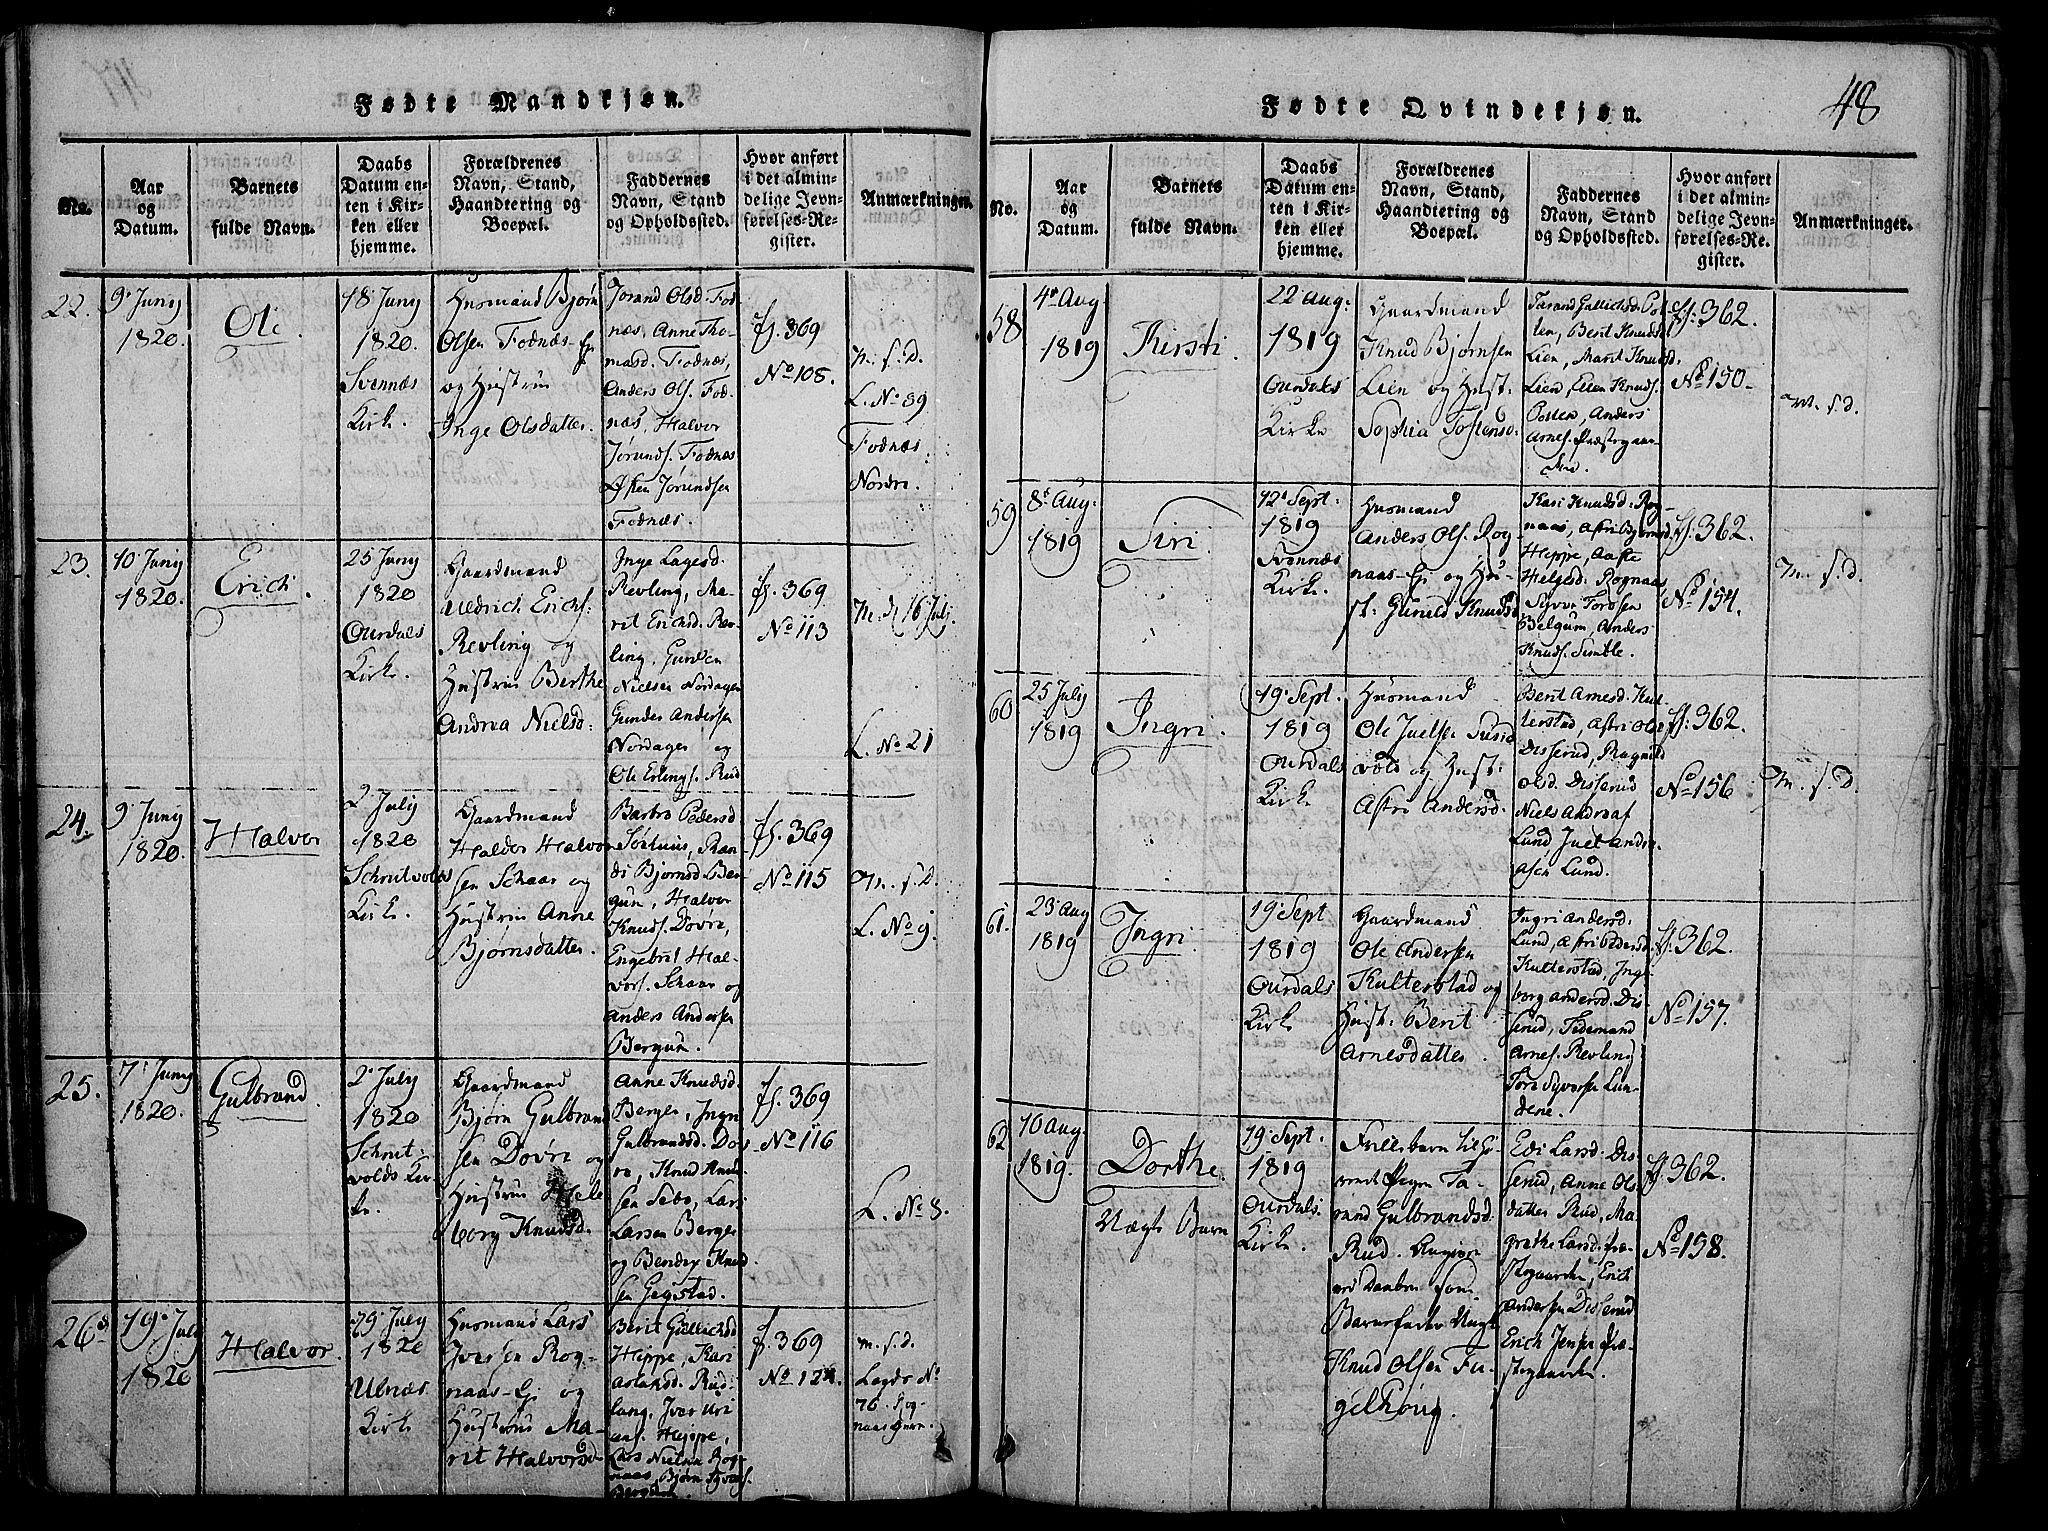 48
Fødte Mandkjøn.
No.
Aar
og
Datum.
Barnets
fulde Navn.
Daabs
Datum en-
ten i Kir-
ken eller
hjemme.
Forældrenes
Navn, Stand,
Haandtering og
Boepæl.
Faddernes
Navn, Stand
og Opholdssted.
Hvor anført
i det almin-
delige Jevn-
førelses-Re-
gister.
Anmærkninger.
22.
9. Juny
1820.
Ole
18 Juny
1820.
Svennæs
Kirke.
Huusmand Bjørn
Olsen Fodnæs-Ej.
og Hustrue
Inge Olsdatter.
Jorand Olsd. Fod-
næs, Anne Tho-
masd. Fodnæs,
Anders Ols. Fod-
næs, Halvor
Jørunds. Fodnæs
Jørundsen
Fodnæs.
fj. 369
No 108.
m. f. d.
L. No 89
Fodnæs
Nordre
23.
10 Juny
1820.
Erich.
25 Juny
1820
Ourdals
Kirke.
Gaardmand
Uldrich Erichs:
Revling og
Hustrue Berthe
Andrea Nielsd:
Inge Lagesd.
Revling, Ma-
rit Erichsd. Rev-
ling, Gunder
Nielsen Nordagen
Gunder Andersen
Nordagen og
Ole Erlings. Rud
fj. 369
No 113
m. d. 16 July.
L. No 21
24.
9. Juny
1820.
Halvor
2. July
1820
Schrutvolds
Kirke.
Gaardmand
Haldor Halvor-
sen Schaar og
Hustrue Anne
Bjørnsdatter.
Barbro Pedersd
Ran-
di Bjørnsd. Ber-
gun, Halvor
Knuds. Dovre,
Engebret Hal-
vors. Schaar og
Anders Andersen
Bergun.
fj. 369
No 115
m. f. d.
L. No 9.
25.
7. Juny
1820.
Gulbrand.
2. July
1820
Schrut-
volds Kir-
ke.
Gaardmand
Bjørn Gulbrand-
sen Dovre og
Hustrue
borg Knudsd.
Anne Knudsd.
Berger, Ingri
Gulbrandsd. Dov-
re, Knud Knud-
sen Sebo, Lars
Larsen Berger
og Bendix Knud-
sen Geigstad.
fj. 369
No 116
L. No 8.
26
19. July
1820
Halvor.
19. July
1820
Ulnæs
Kirke
Huusmand Lars
Iversen Rog-
naas-Ej. og
Hustrue Ma-
rit Halvorsd.
Berit Gullichsd
Heppe, Kari
Aslaksd. Rud-
lang, Iver
Heppe,
Lars Nielsen Rog-
naas, Bjørn Syvers.
fj. 369
m. f. d.
Lagds No
76. Rog-
naas
Fødte Qvindekjøn.
No.
Aar
og
Datum.
Barnets
fulde Navn.
Daabs
Datum en-
ten i Kir-
ken eller
hjemme.
Forældrenes
Navn, Stand,
Haandtering og
Boepæl.
Faddernes
Navn, Stand
og Opholdssted.
Hvor anført
i det almin-
delige Jevn-
førelses-Re-
gister.
Anmærkninger.
58
4. Aug.
1819
Kirsti.
22 Aug:
1819
Ourdals
Kirke
Gaardmand
Knud Bjørnsen
Lien og Hust.
Sophia Tostensd.
Gullichsd.
Berit Knudsd.
Lien, Marit Knudsd.
Lien, Knuds.
Anders
Arnes. Præstegaar-
den.
fj. 362.
No 150.
m. f. d.
59
8. Aug:
1819
Siri.
12. Sept:
1819
Svennæs
Kirke.
Huusmand
Anders Ols. Rog-
naas-Ej. og Hu-
st: Gunild Knudsd.
Kari Knudsd. Rog-
naas,
Heppe, Aaste
Helgesd. Rognaas,
Syver Tordsen
Belgum, Anders
Knuds.
fj. 362.
No 154.
m. f. d.
60
25 July
1819
Ingri.
19. Sept.
1819
Ourdals
Kirke
Huusmand
Ole Juelsen
vold og Hust:
Astri Andersd.
Berit Arnesd. Kul-
terstad, Astri Olsd.
Disserud, Ragnild
Olsd. Disserud
Niels
Lund, Juel Andre-
asen Lund.
fj: 362.
No 156
m. f. d.
61.
23 Aug
1819
Ingri.
19. Sept
1819
Ourdals
Kirke
Gaardmand
Ole Andersen
Kulterstad og
Hust: Berit
Arnesdatter.
Ingri Andersd.
Lund, Astri Pedersd.
Kulterstad, Inge-
borg Andersd. Dis-
serud, Tidemand
Arnes. Revling
Tore Syversen Lun-
dene.
fj. 362
No 157.
62
16 Aug.
1819.
Dorthe
Uægte Barn
19. Sept:
1819
Ourdals
Kirke.
Frillebarn
Pigen
Gulbrandsd.
Rud. Angiven
ved Daaben som
Barnefader
Knud Olsen Fu-
gelhoug.
Edi Larsd. Dis-
serud, Anne Ols-
datter Rud, Ma-
grethe Larsd. Præ-
stegaarden, Erich
Andersen Disserud
Erich Jensen Præ-
stegaarden.
fj. 362
No 158.